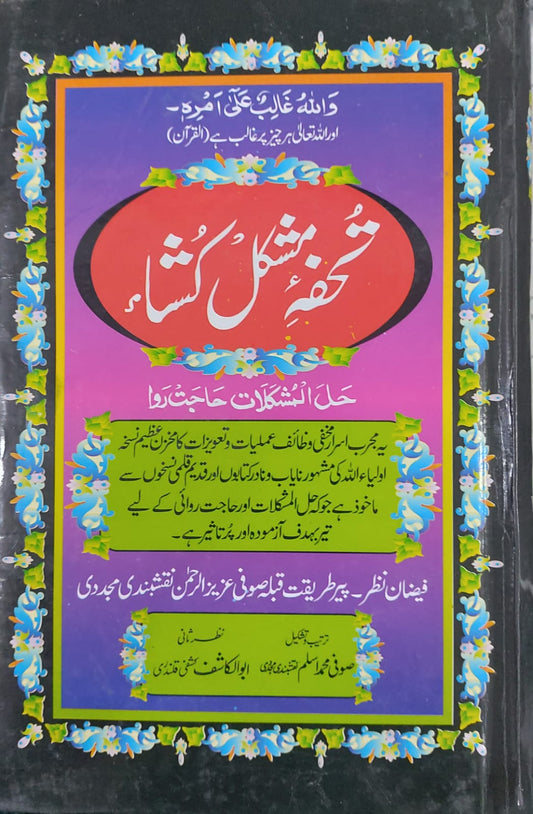 وَاللّٰهُ غَالِبٌ عَلٰٓی اَمْرِہٖ۔
اور اللہ تعالیٰ ہر چیز پر غالب ہے (القرآن)
تُحفہِٴ مشکل کُشاء
حَل المُشکلَات حَاجَتْ رَوا
یہ مجرب اسرار مخفی وظائف عملیات و تعویزات کا مخزن عظیم نسخہ
اولیاء اللہ کی مشہور نایاب و نادر کتابوں اور قدیم قلمی نسخوں سے
ماخوذ ہے جو کہ حل المشکلات اور حاجت روائی کے لیے
تیر بہدف آزمودہ اور پُر تاثیر ہے۔
فیضان نظر۔ پیر طریقت قبلہ صوفی عزیز الرحمٰن نقشبندی مجددی
ترتیب و تشکیل
صوفی محمد اسلم نقشبندی مجددی
نظر ثانی
ابوالکاشف چشتی قلندری